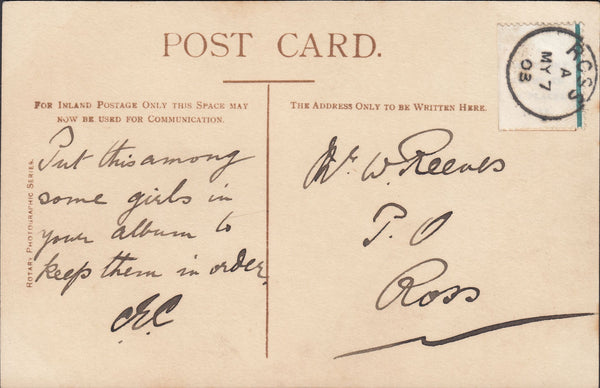 POST CARD.
FOR INLAND POSTAGE ONLY THIS SPACE MAY
NOW BE USED FOR COMMUNICATION.
THE ADDRESS ONLY TO BE WRITTEN HERE.
ROTARY PHOTOGRAPHIC SERIES.
Put this among
some girls in
your album to
keep them in order.
Mr. W. Reeves
P. O
Ross
ROSS
A
MY 7
03